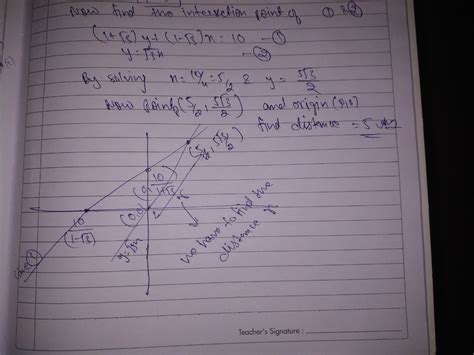 Now find the intersection point of ① & ②
(1+√3) y + (1-√3)x = 10 — ①
y = √3x — ②
By solving x = 10/4 = 5/2 & y = 5√3/2
Now point (5/2, 5√3/2) and origin (0,0)
find distance = 5
(5/2, 5√3/2)
(0, 10/1+√3)
(0,0)
10/(1-√3)
y=√3x
we have to find the
distance
Teacher's Signature :